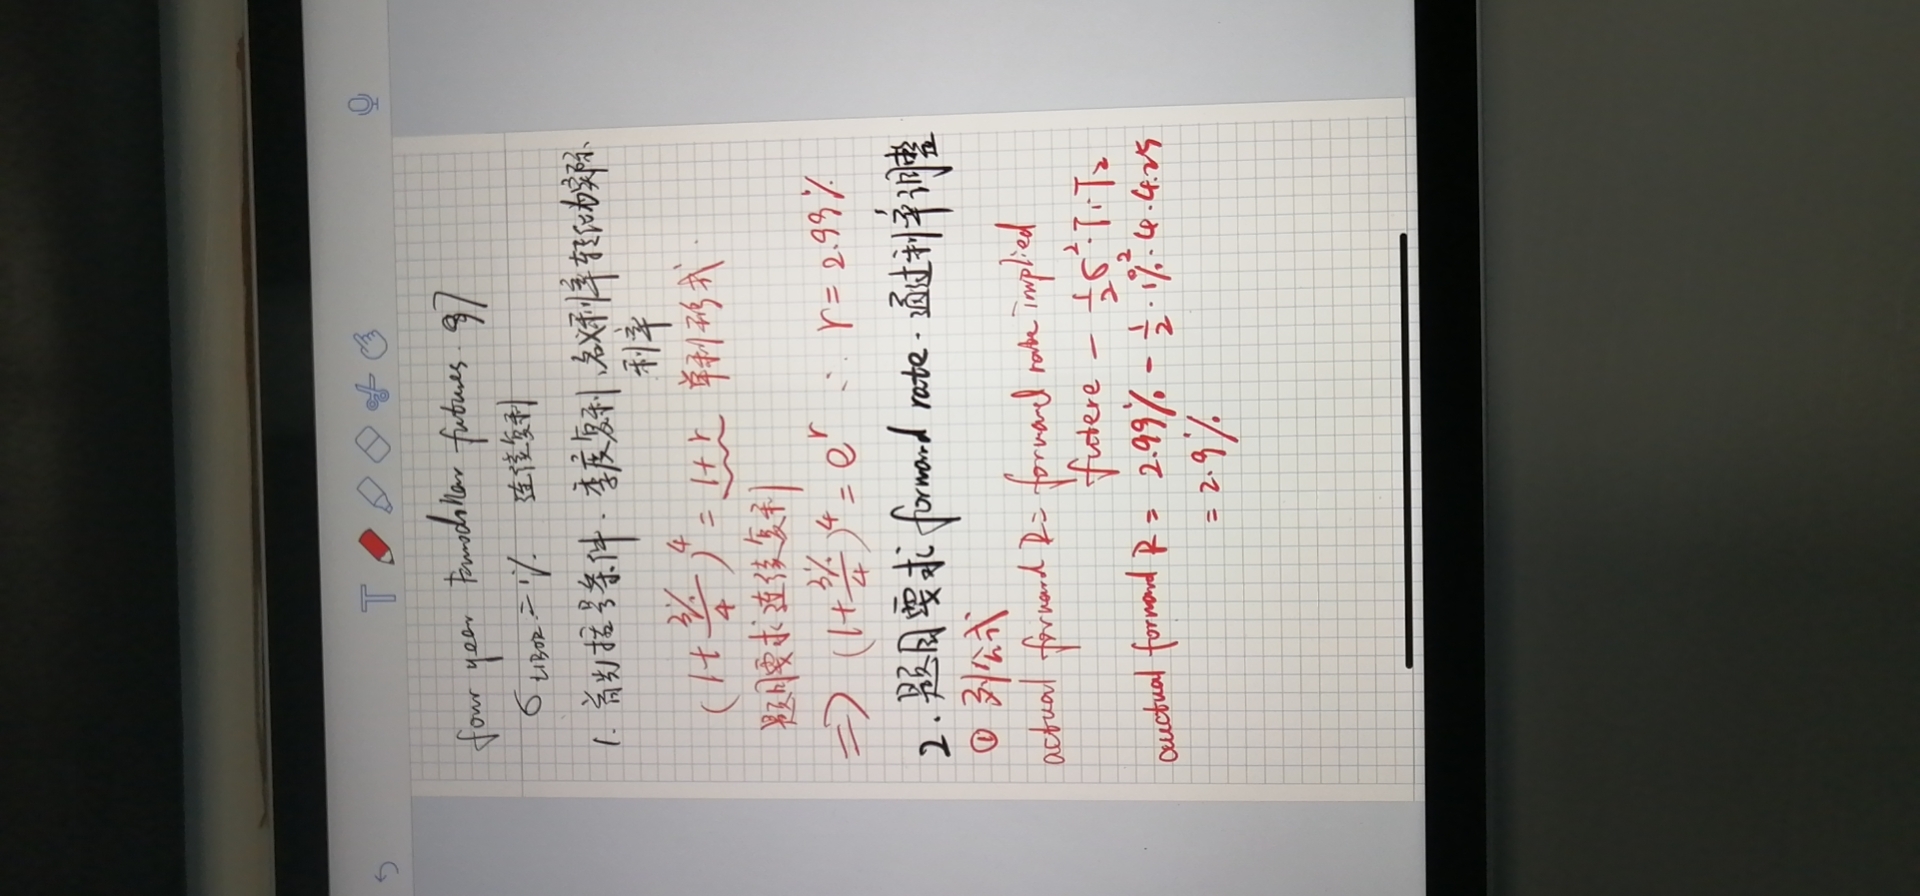 four year Eurodollar futures. 97
σ LIBOR = 1%. 连续复利
1. 首先括号条件. 季度复利、名义利率转化为实际
利率
(1+ 3%/4 )^4 = 1+r 单利形式
题目要求连续复利
=> (1+ 3%/4 )^4 = e^r ∴ r = 2.99%
2. 题目要求 forward rate. 通过利率调整
① 列公式
actual forward R = forward rate implied
futere - 1/2 σ^2·T1·T2
auctual forward R = 2.99% - 1/2 · 1%^2 · 4 · 4.25
= 2.9%
T